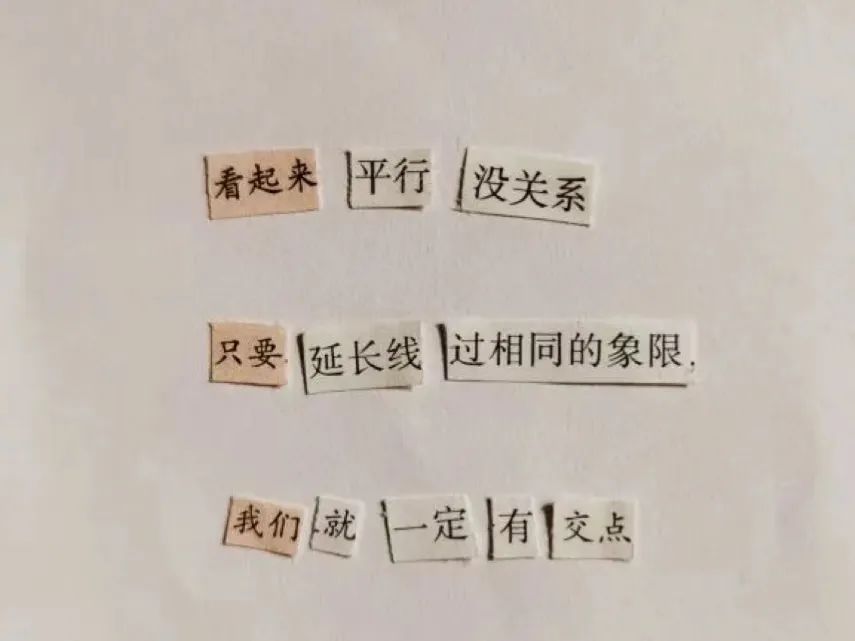 看起来 平行 没关系
只要 延长线 过相同的象限,
我们 就 一定 有 交点